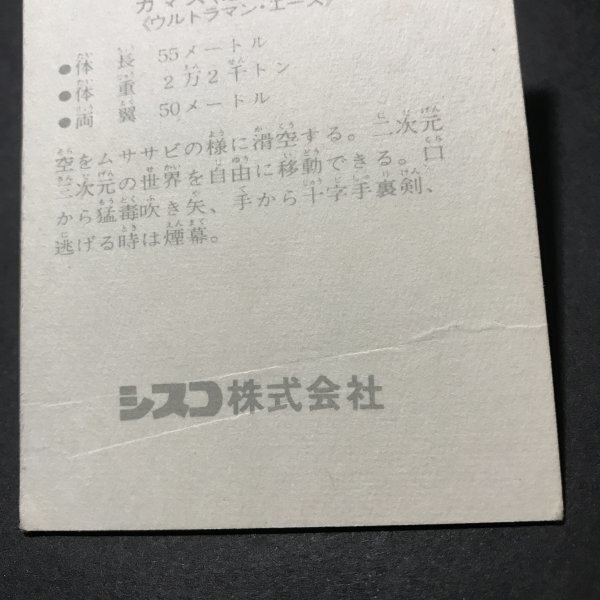 〈ウルトラマン・エース〉
●体長 55メートル
●体重 2万2千トン
●両翼 50メートル
空をムササビの様に滑空する。二次元
三次元の世界を自由に移動できる。口
から猛毒吹き矢、手から十字手裏剣、
逃げる時は煙幕。
シスコ株式会社